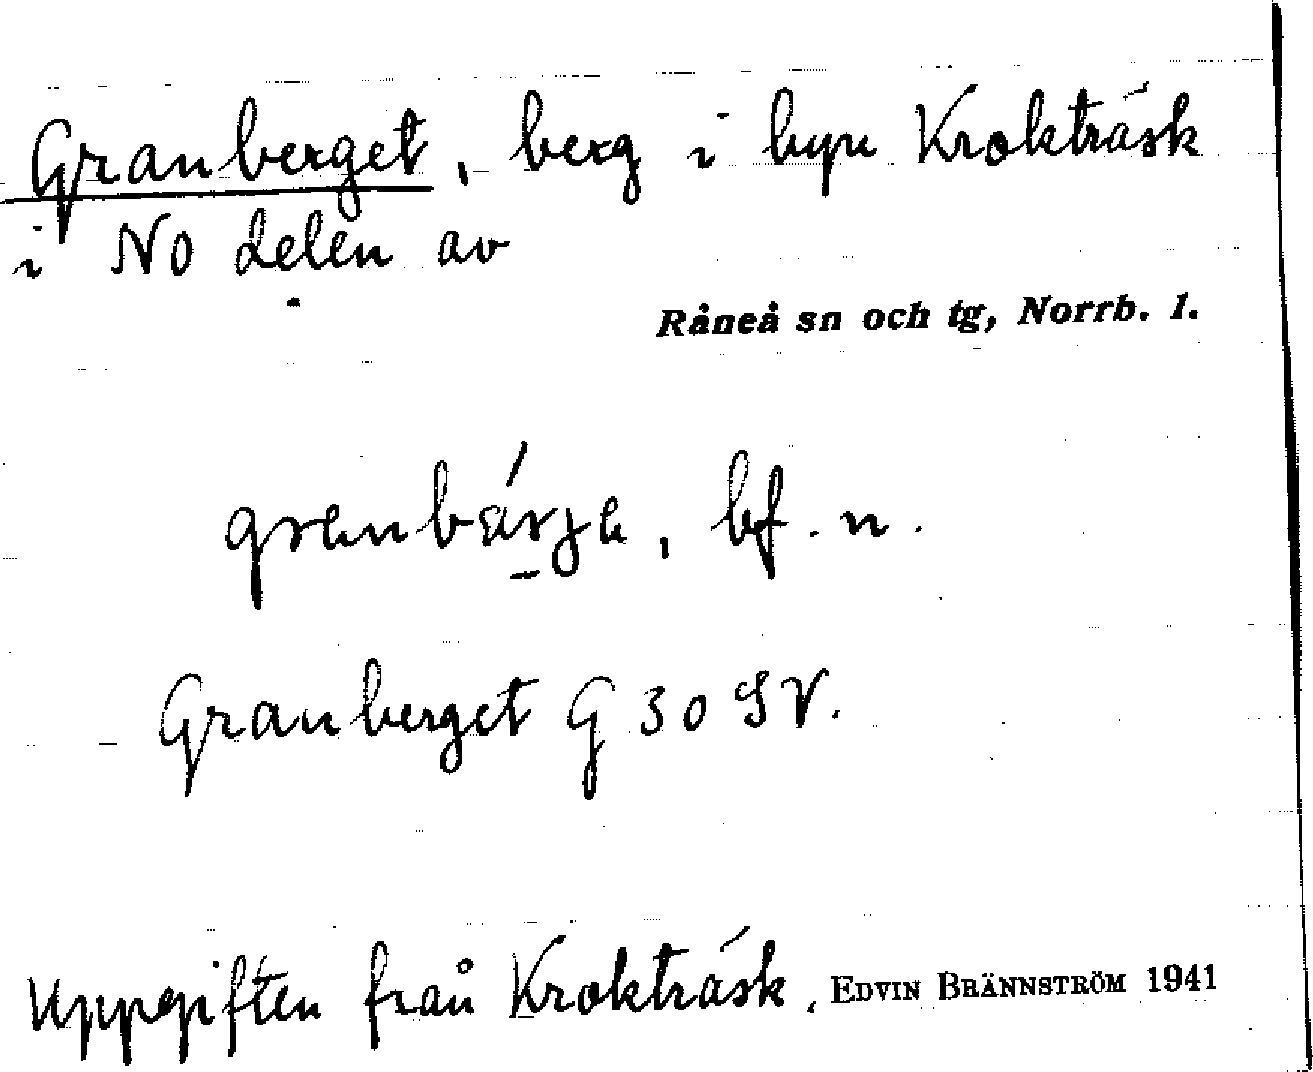 Granberget, berg i byn Kroktråsk
i NO delen av
Råneå sn och tg, Norrb. l.
bf. n.
Granberget G 30 SV.
Uppgiften från Kroktråsk, EDVIN BRÄNNSTRÖM 1941